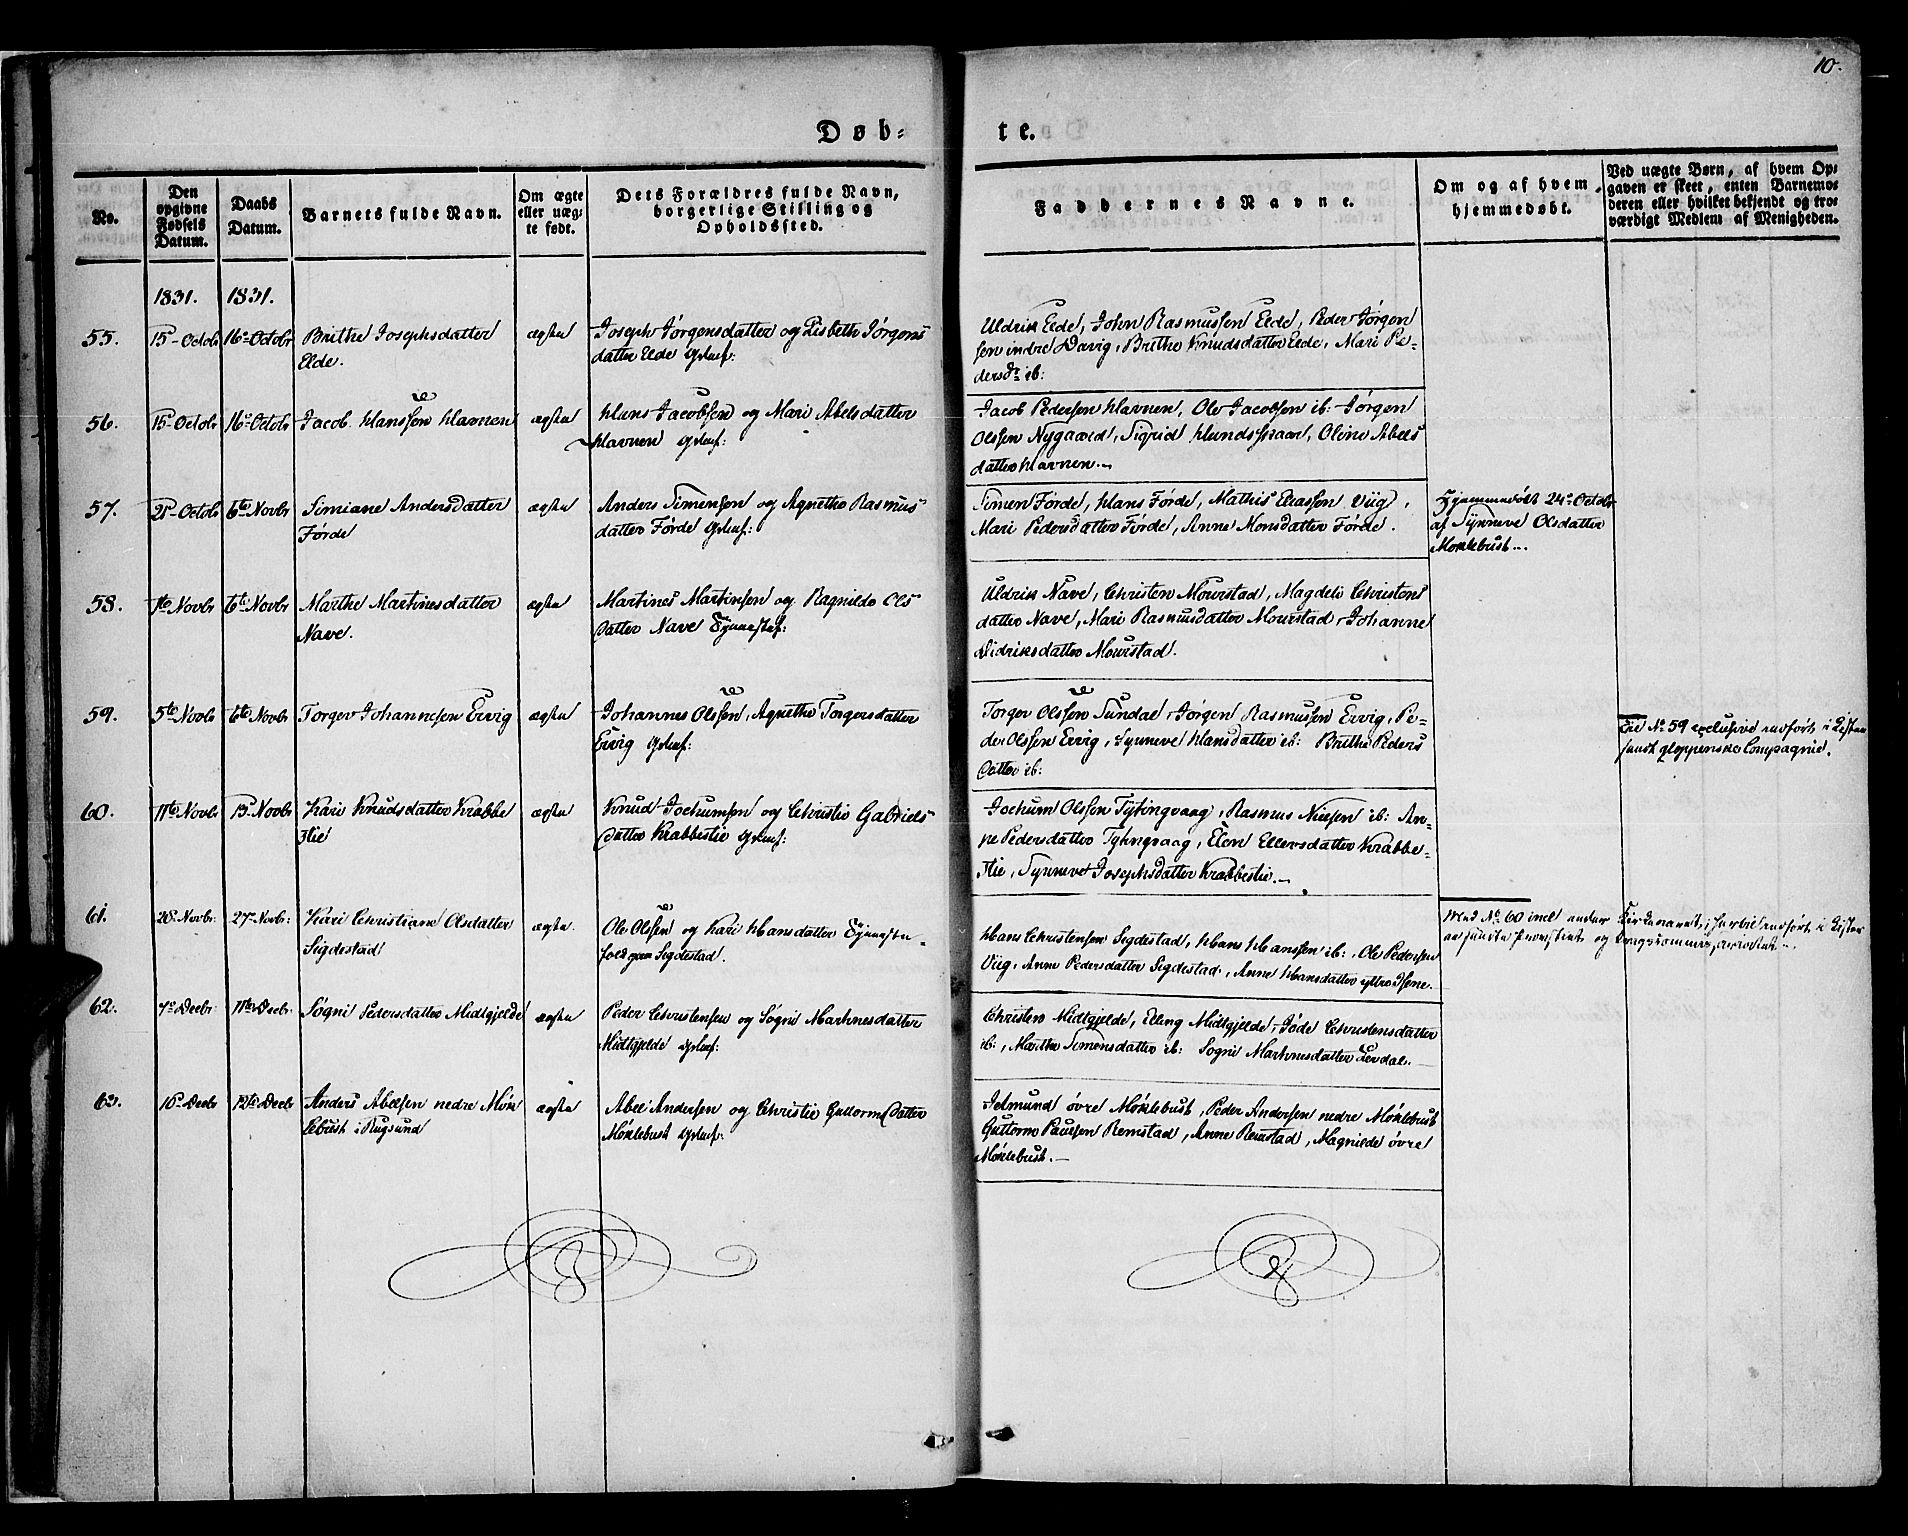 10.
Døb-
te.
No.
Den opgivne Fødsels Datum.
Daabs Datum.
Barnets fulde Navn.
Om ægte eller uæg- te født.
Dets Forældres fulde Navn, borgerlige Stilling og Opholdssted.
Faddernes Navne.
Om og af hvem hjemmedøbt.
Ved uægte Børn, af hvem Op-
gaven er skeet, enten Barnemo-
deren eller hvilket bekjendt og tro-
værdigt Medlem af Menigheden.
1831. 1831.
55. 15 Octob 16 Octobr Brithe Josephsdatter ægte Joseph Jørgensdatter og Lisbeth Jørgens
Elde. datter Elde
Uldrik Elde, John Rasmussen Elde, Peder Jørgen
sen indre Davig, Brithe Knudsdatter Elde, Mari Pe-
dersdr ib:
56. 15 Octob 16 Octob Jacob Hanssen Havnen ægte Hans Jacobsen og Mari Abelsdatter
Havnen
Jacob Pedersen Havnen, Ole Jacobsen ib: Jørgen
Olssen Nygaard, Sigrid Hundskaar, Oline Abels
datter Havnen.
57. 21 Octob 6te Novbr Simiane Andersdatter ægte Anders Simensen og Agnethe Rasmus
Førde datter Førde
Simen Førde, Hans Førde, Mathis Eliassen Viig,
Mari Pedersdatter Førde, Anne Monsdatter Førde.
Hjemmedøbt 24 Octobr
af Synneve Olsdatter
Moklebust.
58. 1te Novbr 6te Novbr Marthe Martinesdatter ægte Martines Martinsen og Ragnilde Ols
Nave. datter Nave
Uldrik Nave, Christen Mourstad, Magdeli Christens
datter Nave, Mari Rasmusdatter Mourstad, Johanne
Didriksdatter Mourstad.
59. 5te Novb 6te Novbr Torger Johannesen Ervig ægte Johannes Olssen, Agnethe Torgersdatter
Ervig
Torger Olssen Sundal, Jørgen Rasmussen Ervig, Pe-
der Olssen Ervig, Synneve Hansdatter ib: Brithe Peders
datter ib:
Til No 59 exclusive indført i Listen
sendt gloppenske Compagnie.
60. 11te Novbr 13 Novbr Kari Knudsdatter Krabbe ægte Knud Jochumsen og Christie Gabriels
stie datter Krabbestie
Jochum Olssen Tytingvaag, Rasmus Nilsen ib: An-
ne Pedersdatter Tytingvaag, Elen Ellersdatter Krabbe-
stie, Synneve Josephsdatter Krabbestie.
61. 26 Novbr: 27 Novbr: Kari Christiane Olsdatter ægte. Ole Olssen og Kari Hansdatter
Sigdestad Sigdestad.
Hans Christensen Sigdestad, Hans Hanssen ib:, Ole Pedersen
Viig, Anne Pedersdatter Sigdestad, Anne Hansdatter yttre Isene.
Med No 60 incl indført i Lister
62. 7 Decbr 11te Decbr Søgni Pedersdatter Midtgjelde ægte Peder Christensen og Søgni Martinesdatter
Midtgjelde
Christen Midtgjelde, Elling Midtgjelde, Jøde Christensdatter
ib:, Marthe Simonsdatter ib: Sogni Martinesdatter Lerdal.
63. 10 Decbr Decbr Anders Abelsen nedre Møk ægte Abel Andersen og Christie Guttormsdatter
lebust i Rugsund Møklebust
Jetmund øvre Møklebust, Peder Andersen nedre Møklebust
Guttorm Paulsen Remstad, Anne Remstad, Magnilde øvre
Møklebust.